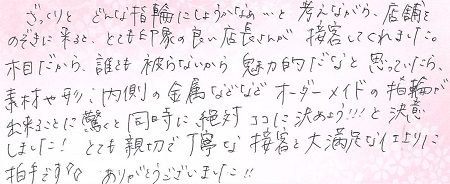 ざっくりと どんな指輪にしようかなぁ…と 考えながら、店舗を
のぞきに来ると、とても印象の良い店長さんが 接客してくれました。
木目だから、誰とも 被らないから 魅力的だなと 思っていたら、
素材や形、内側の金属などなど オーダーメイドの指輪が
出来ることに驚くと同時に絶対 ココに決めよう!!!と決意
しました! とても親切で丁寧な 接客と大満足な仕上りに
拍手です☆ ありがとうございました!!